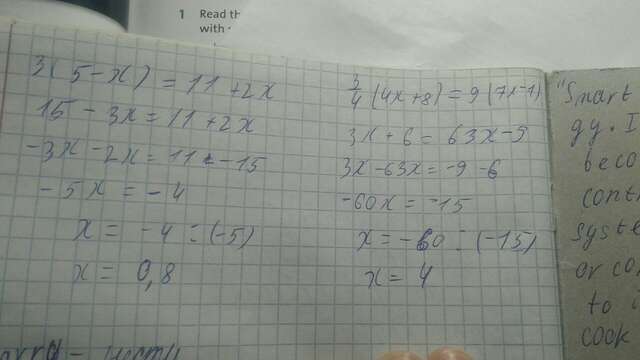 1 Read th
with
3(5-x) = 11+2x
15-3x=11+2x
-3x-2x=11-15
-5x=-4
x = -4:(-5)
x = 0,8
3/4(4x+8)=9(7x-1)
3x+6=63x-9
3x-63x=-9-6
-60x=-15
x=-60:(-15)
x=4
"Smart
gy. I
beco
cont
syste
or co
to
cook